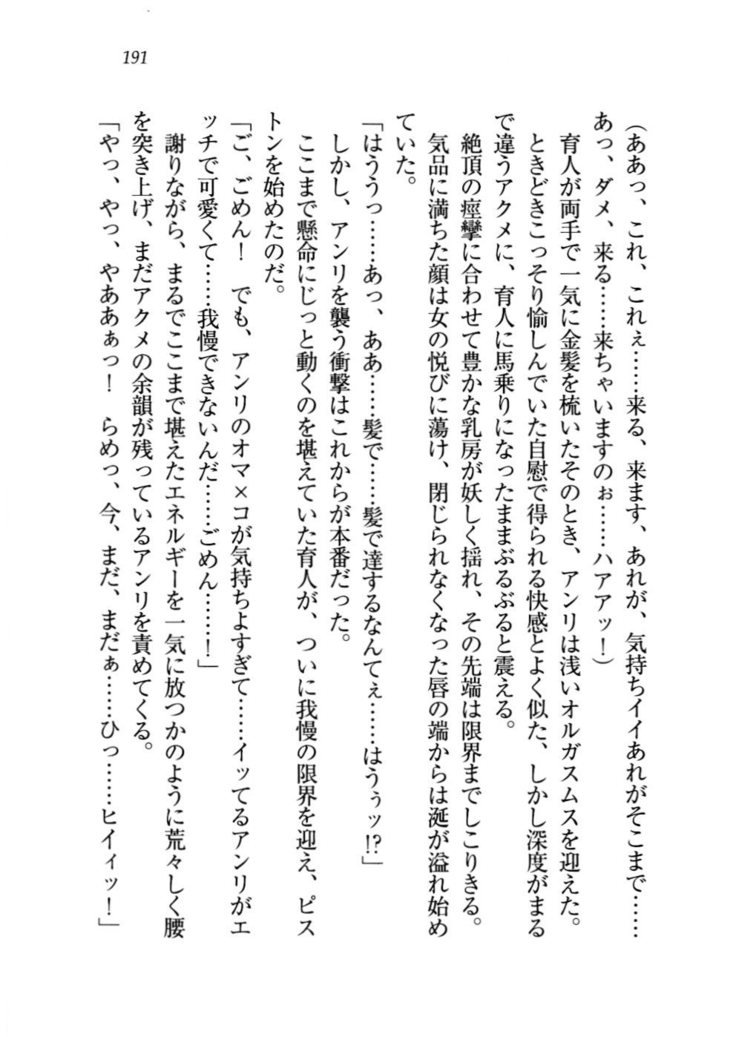 191
（ああっ、これ、これぇ……来る、来ます、あれが、気持ちイイあれがそこまで……
あっ、ダメ、来る……来ちゃいますのぉ……ハアアッ！）
　育人が両手で一気に金髪を梳いたそのとき、アンリは浅いオルガスムスを迎えた。
　ときどきこっそり愉しんでいた自慰で得られる快感とよく似た、しかし深度がまる
で違うアクメに、育人に馬乗りになったままぶるぶると震える。
　絶頂の痙攣に合わせて豊かな乳房が妖しく揺れ、その先端は限界までしこりきる。
　気品に満ちた顔は女の悦びに蕩け、閉じられなくなった唇の端からは涎が溢れ始め
ていた。
「はううっ……あっ、ああ……髪で……髪で達するなんてぇ……はうぅッ!?」
　しかし、アンリを襲う衝撃はこれからが本番だった。
　ここまで懸命にじっと動くのを堪えていた育人が、ついに我慢の限界を迎え、ピス
トンを始めたのだ。
「ご、ごめん！　でも、アンリのオマ×コが気持ちよすぎて……イッてるアンリがエ
ッチで可愛くて……我慢できないんだ……ごめん……！」
　謝りながら、まるでここまで堪えたエネルギーを一気に放つかのように荒々しく腰
を突き上げ、まだアクメの余韻が残っているアンリを責めてくる。
「やっ、やっ、やああぁっ！　らめっ、今、まだ、まだぁ……ひっ……ヒイィッ！」